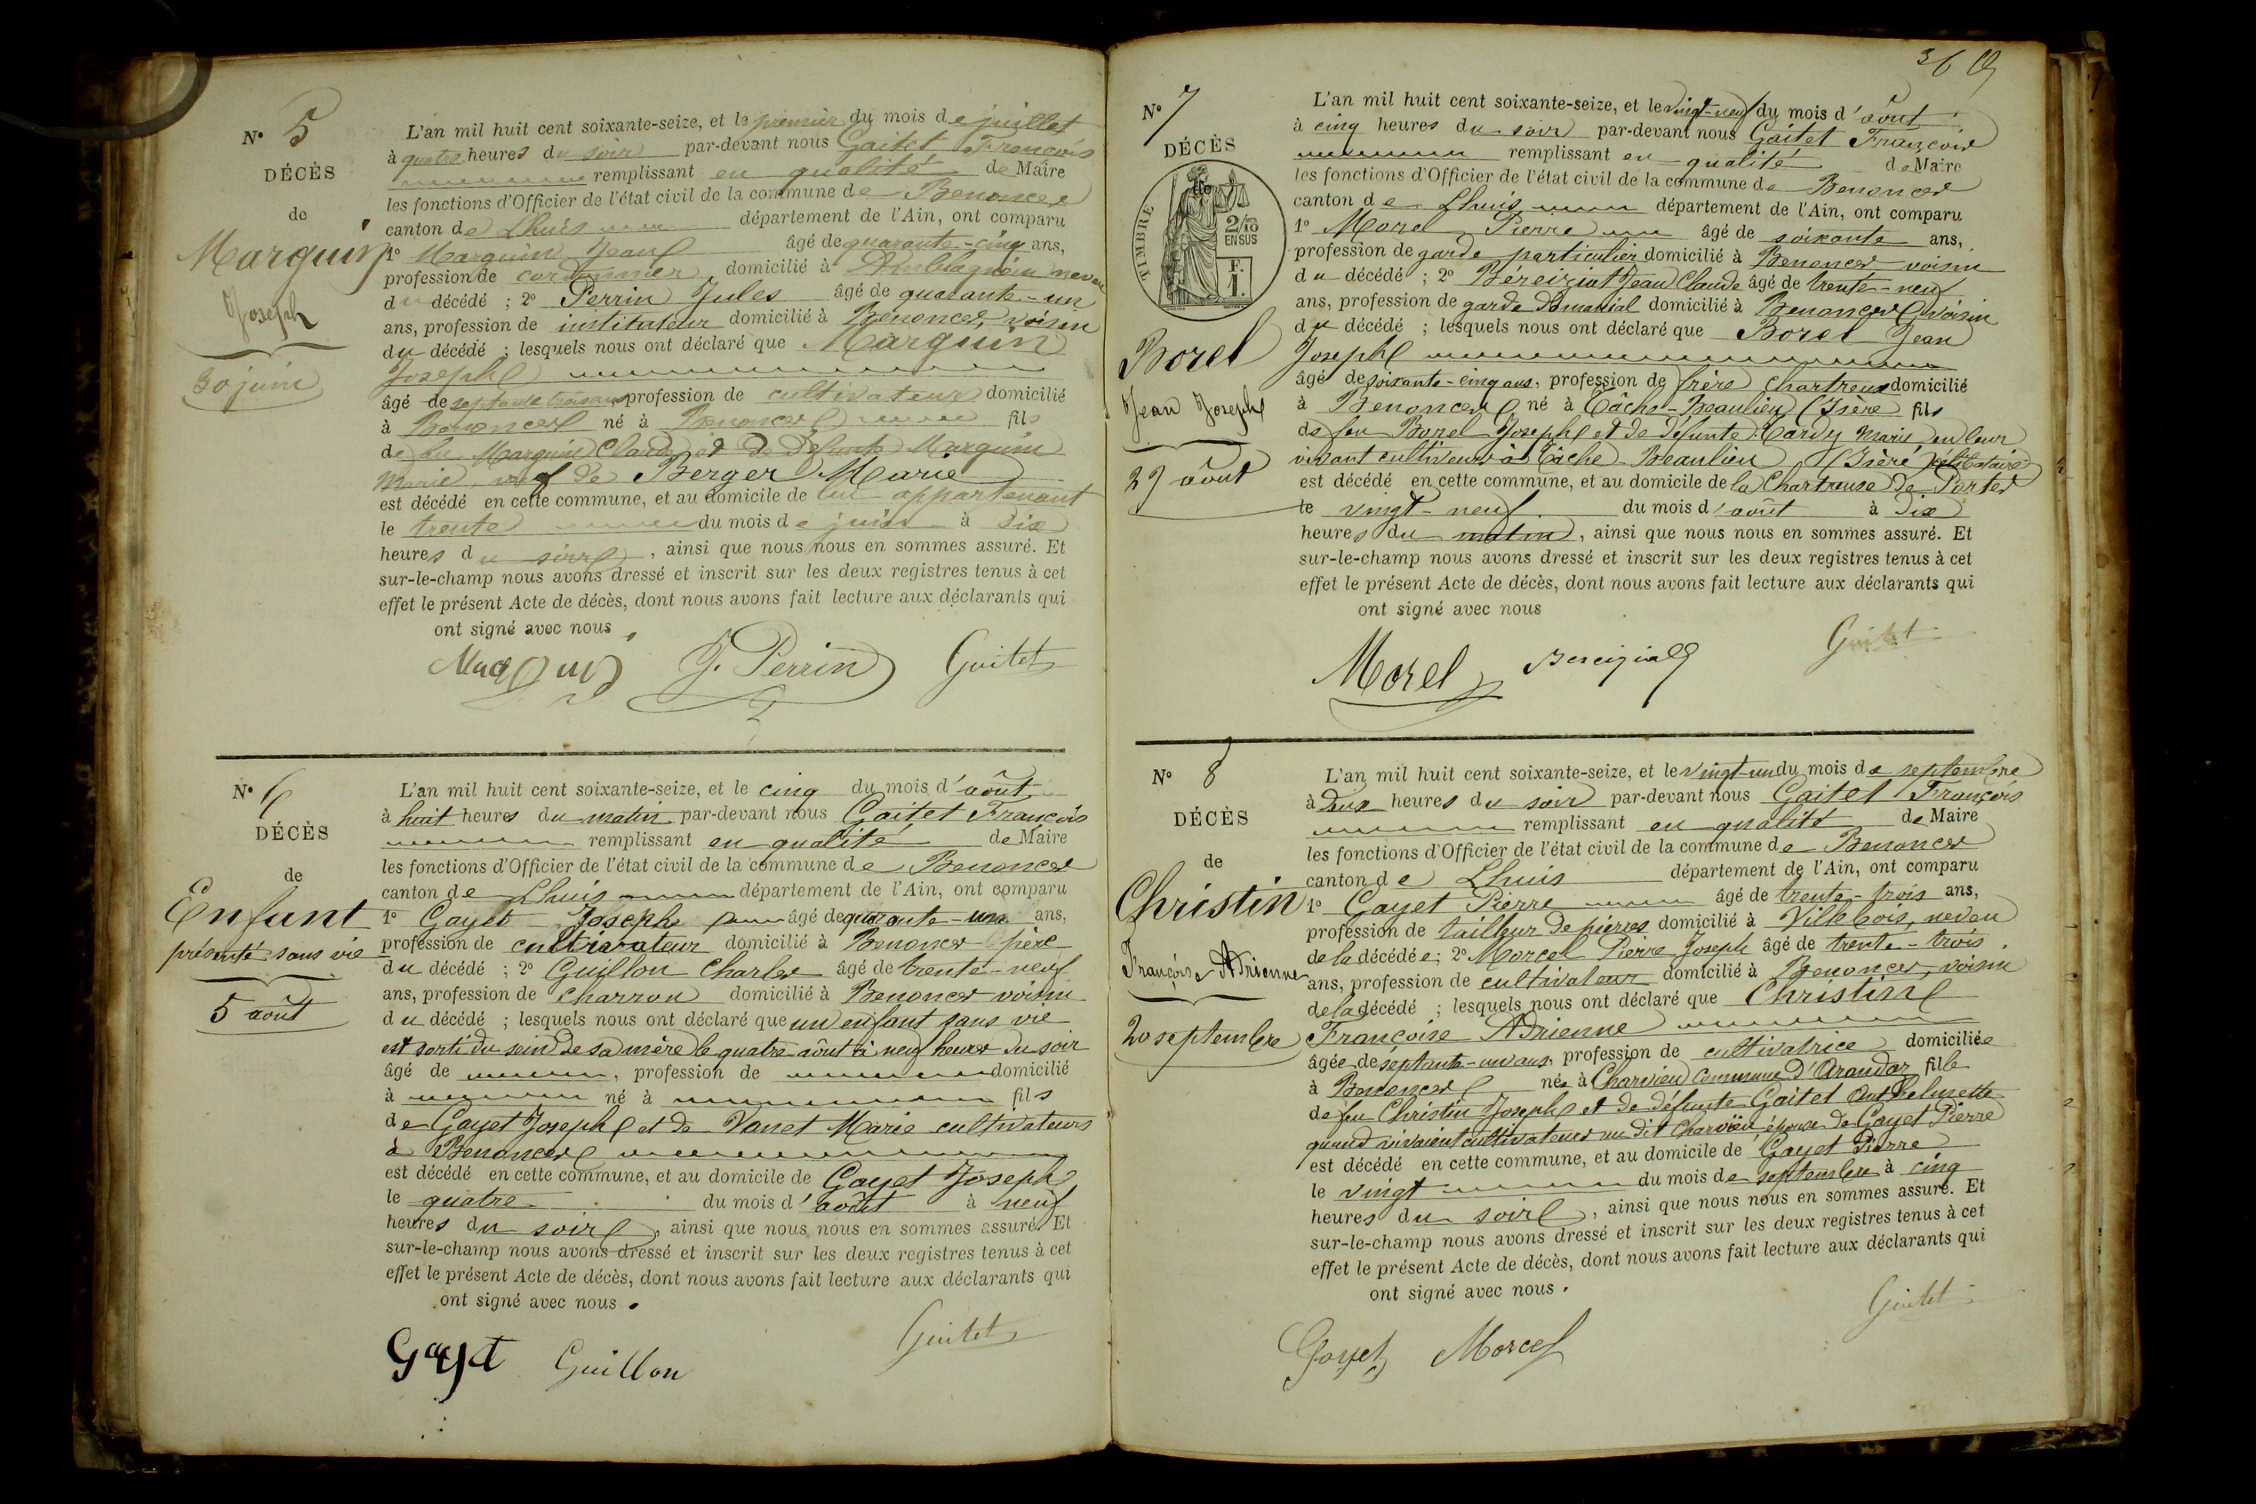 N° 5
DÉCÈS
de
Marguin
Joseph
30 juin
L'an mil huit cent soixante-seize, et le premier du mois de juillet
à quatre heures du soir par-devant nous Gaitet François
remplissant en qualité de Maire
les fonctions d'Officier de l'état civil de la commune de Benonces
canton de Lhuis département de l'Ain, ont comparu
1° Marguin Jean âgé de quarante-cinq ans,
profession de cordonnier, domicilié à Amblagnieu neveu
du décédé ; 2° Perrin Jules âgé de quarante-un
ans, profession de instituteur domicilié à Bénonces, voisin
du décédé ; lesquels nous ont déclaré que Marguin
Joseph
âgé de septante trois ans, profession de cultivateur domicilié
à Benonces né à Benonces fils
de feu Marguin Claude et de défunte Marguin
Marie, veuf de Berger Marie
est décédé en cette commune, et au domicile de lui appartenant
le trente du mois de juin à dix
heures du soir, ainsi que nous nous en sommes assuré. Et
sur-le-champ nous avons dressé et inscrit sur les deux registres tenus à cet
effet le présent Acte de décès, dont nous avons fait lecture aux déclarants qui
ont signé avec nous.
Marguin J. Perrin Guitet
N° 6
DÉCÈS
de
Enfant
présenté sans vie
5 août
L'an mil huit cent soixante-seize, et le cinq du mois d'août
à huit heures du matin par-devant nous Gaitet François
remplissant en qualité de Maire
les fonctions d'Officier de l'état civil de la commune de Benonces
canton de Lhuis département de l'Ain, ont comparu
1° Gayet Joseph âgé de quarante-un ans,
profession de cultivateur domicilié à Benonces père
du décédé ; 2° Guillon Charles âgé de trente-neuf
ans, profession de charron domicilié à Benonces voisin
du décédé ; lesquels nous ont déclaré que un enfant sans vie
est sorti du sein de sa mère le quatre août à neuf heures du soir
âgé de , profession de domicilié
à né à fils
de Gayet Joseph et de Vanet Marie cultivateurs
à Benonces
est décédé en cette commune, et au domicile de Gayet Joseph
le quatre du mois d'août à neuf
heures du soir, ainsi que nous nous en sommes assuré. Et
sur-le-champ nous avons dressé et inscrit sur les deux registres tenus à cet
effet le présent Acte de décès, dont nous avons fait lecture aux déclarants qui
ont signé avec nous.
Gayet Guillon Guitet
N° 7
DÉCÈS
TIMBRE
2/10
EN SUS
F.
1.
Borel
Jean Joseph
29 août
L'an mil huit cent soixante-seize, et le vingt-neuf du mois d'août
à cinq heures du soir par-devant nous Gaitet François
remplissant en qualité de Maire
les fonctions d'Officier de l'état civil de la commune de Benonces
canton de Lhuis département de l'Ain, ont comparu
1° Morel Pierre âgé de soixante ans,
profession de garde particulier domicilié à Benonces voisin
du décédé ; 2° Béreiziat Jean Claude âgé de trente-neuf
ans, profession de garde domanial domicilié à Benonces voisin
du décédé ; lesquels nous ont déclaré que Borel Jean
Joseph
âgé de soixante-cinq ans, profession de frère chartreux domicilié
à Benonces né à Tâche-Beaulieu (Isère) fils
de feu Borel Joseph et de défunte Cardy Marie en leur
vivant cultiveurs à Tâche Beaulieu (Isère) célibataire
est décédé en cette commune, et au domicile de la Chartreuse de Portes
le vingt-neuf du mois d'août à dix
heures du matin, ainsi que nous nous en sommes assuré. Et
sur-le-champ nous avons dressé et inscrit sur les deux registres tenus à cet
effet le présent Acte de décès, dont nous avons fait lecture aux déclarants qui
ont signé avec nous
Morel Bereiziat Guitet
N° 8
DÉCÈS
de
Christin
Françoise Adrienne
20 septembre
L'an mil huit cent soixante-seize, et le vingt-un du mois de septembre
à deux heures du soir par-devant nous Gaitet François
remplissant en qualité de Maire
les fonctions d'Officier de l'état civil de la commune de Benonces
canton de Lhuis département de l'Ain, ont comparu
1° Gayet Pierre âgé de trente-trois ans,
profession de tailleur de pierres domicilié à Villebois, neveu
de la décédée ; 2° Morcel Pierre Joseph âgé de trente-trois
ans, profession de cultivateur domicilié à Benonces, voisin
de la décédé ; lesquels nous ont déclaré que Christin
Françoise Adrienne
âgée de septante-un ans, profession de cultivatrice domiciliée
à Benonces née à Charvieu commune d'Arandas fille
de feu Christin Joseph et de défunte Gaitet Anthelmette
quand vivaient cultivateurs au dit Charvieu épouse de Gayet Pierre
est décédé en cette commune, et au domicile de Gayet Pierre
le vingt du mois de septembre à cinq
heures du soir, ainsi que nous nous en sommes assuré. Et
sur-le-champ nous avons dressé et inscrit sur les deux registres tenus à cet
effet le présent Acte de décès, dont nous avons fait lecture aux déclarants qui
ont signé avec nous.
Gayet Morcel Guitet